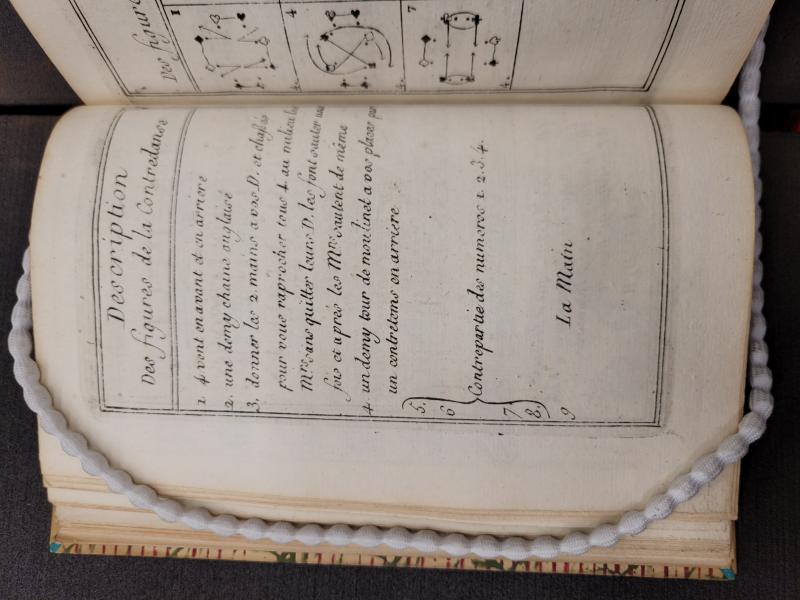 Des figure
1
4
7
Description
Des figures de la Contredanse
1. 4 vont en avant et en arriere
2. une demy chaine anglaise
3. donner les 2 mains a vos D. et chassés
pour vous raprocher tous 4 au milieu les
Mrs sans quitter leurs D. les font sauter une
fois et après les Mrs sautent de même
4. un demy tour de moulinet a vos places par
un contretems en arriere
5.
6
Contrepartie des numeros 1. 2. 3. 4.
7
8.
9 La Main